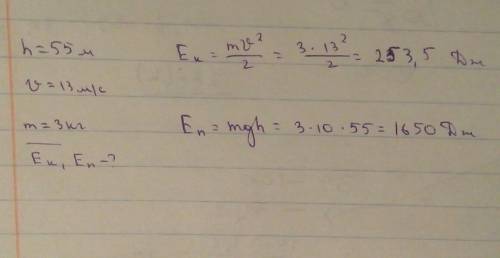 h = 55 м
Eк = mv²/2 = 3 · 13²/2 = 253,5 Дж
v = 13 м/с
m = 3 кг
Eп = mgh = 3 · 10 · 55 = 1650 Дж
Eк, Eп - ?